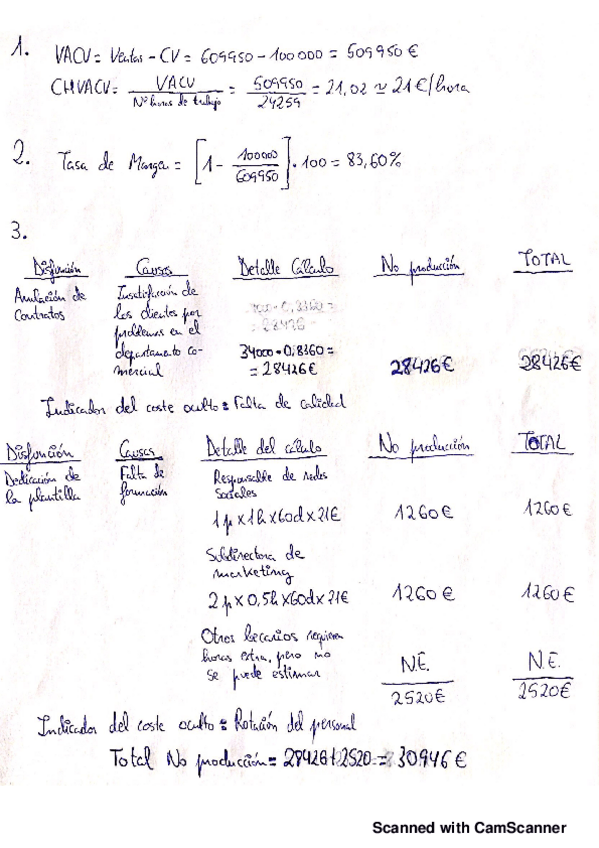 1. VACV = Ventas - CV = 609950 - 100000 = 509950 €
CHVACV = VACV / Nº horas de trabajo = 509950 / 24259 = 21,02 ≃ 21 €/hora
2. Tasa de Marga = [1 - 100000 / 609950] · 100 = 83,60%
3.
Disfunción Causas Detalle Cálculo No producción TOTAL
Anulación de Insatisfacción de
Contratos los clientes por
problemas en el
departamento co- 34000 · 0,8360 =
mercial = 28426 € 28426 € 28426 €
Indicador del coste oculto = Falta de calidad
Disfunción Causas Detalle del cálculo No producción TOTAL
Dedicación de Falta de Responsable de redes
la plantilla formación Sociales
1p x 1h x 60d x 21€ 1260 € 1260 €
Subdirectora de
marketing
2p x 0,5h x 60d x 21€ 1260 € 1260 €
Otros becarios requieren
horas extra, pero no N.E. N.E.
se puede estimar 2520 € 2520 €
Indicador del coste oculto = Rotación del personal
Total No producción = 28426 + 2520 = 30946 €
Scanned with CamScanner